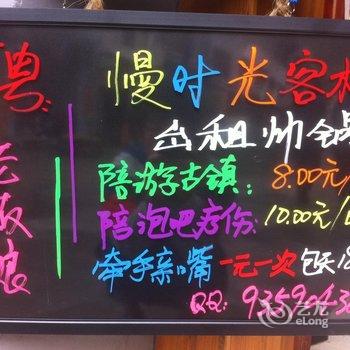 聘:
老板娘
慢时光客栈
出租帅锅
陪游古镇: 8.00元/
陪泡吧疗伤: 10.00元/
牵手亲嘴 一元一次 包天
QQ: 9359043
艺龙
eLong.com